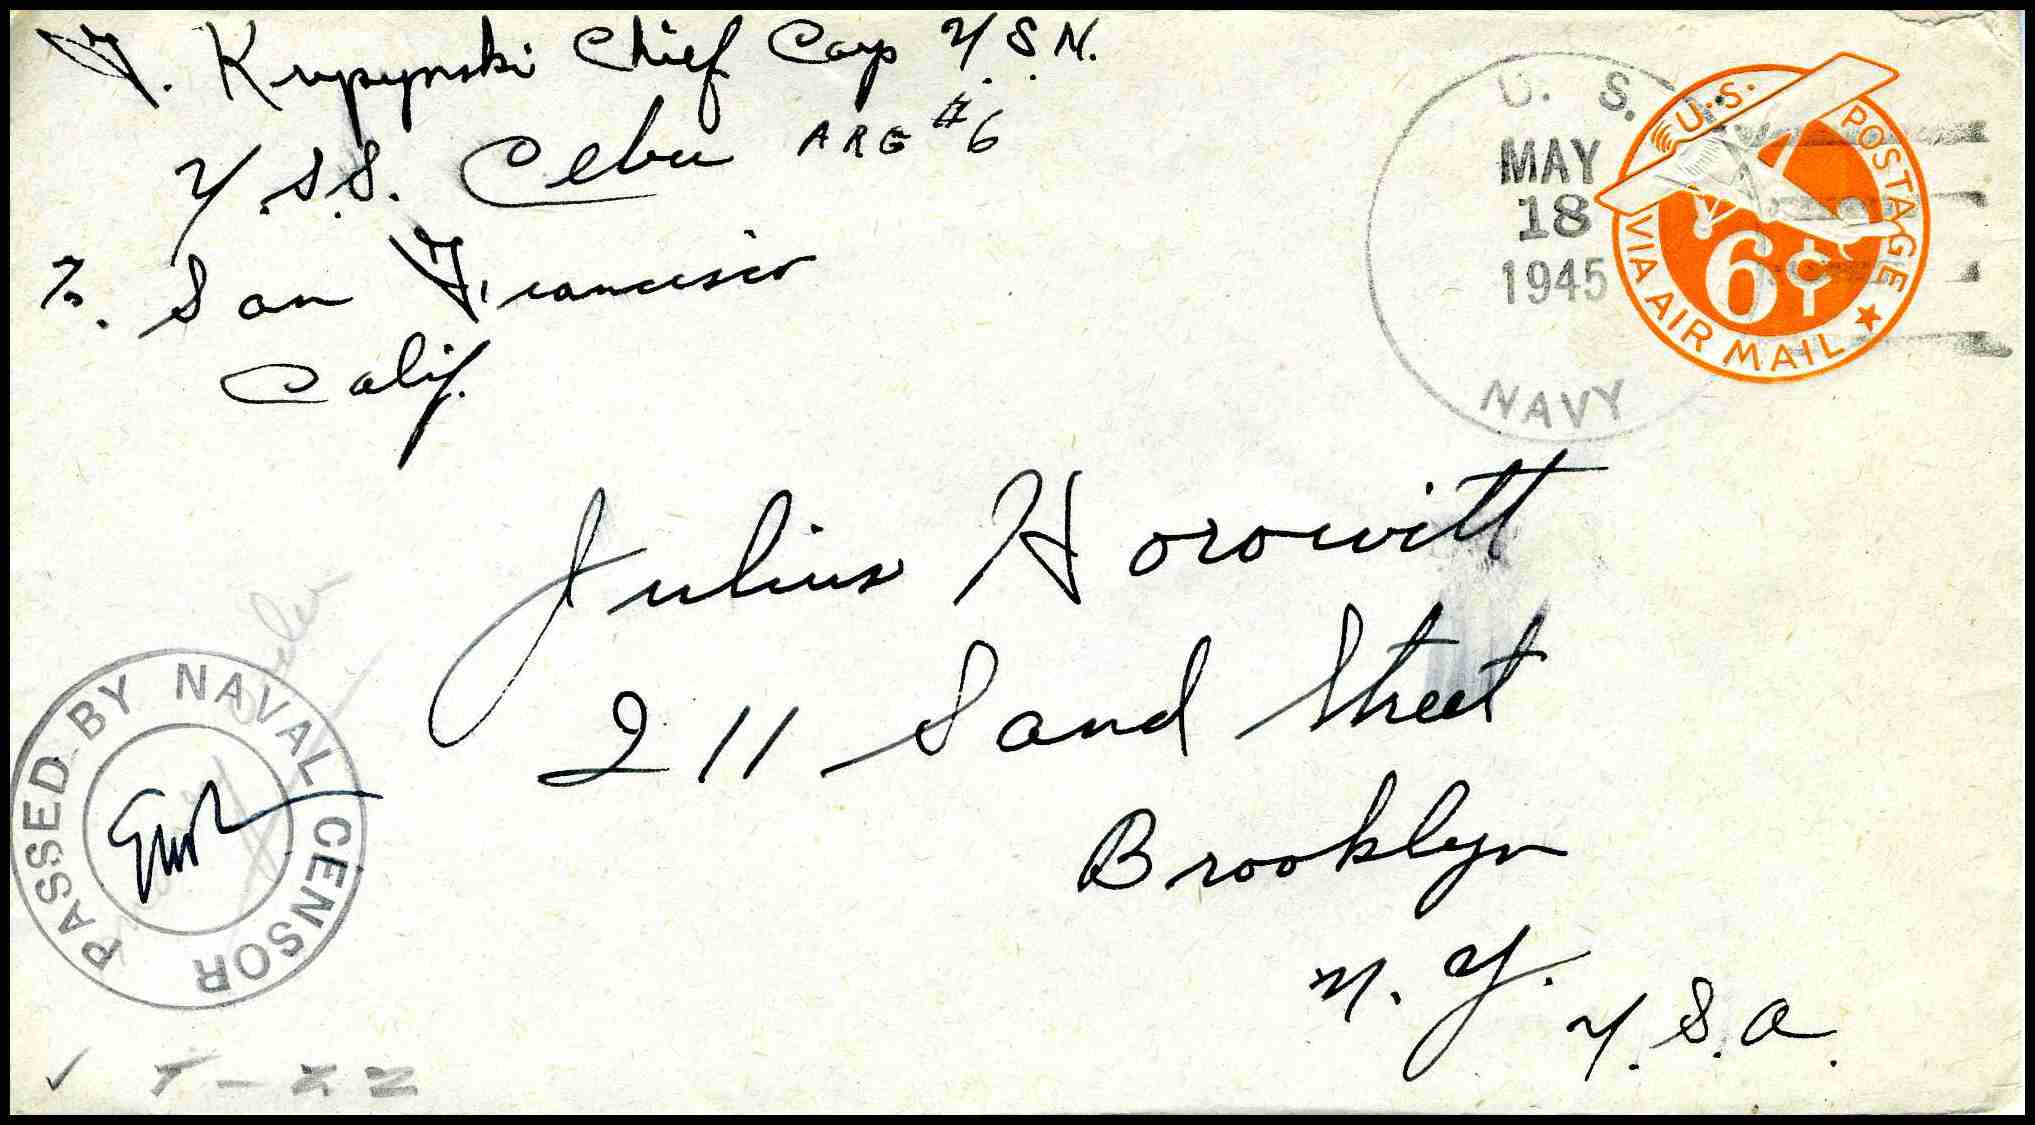 F. Krypynski Chief Carp U.S.N.
U.S.S. Cebu ARG #6
% San Francisco
Calif.
U. S.
MAY
18
1945
NAVY
U.S. POSTAGE
6¢
VIA AIR MAIL
Julius Horowitt
211 Sand Street
Brooklyn
N. Y.
U.S.A.
PASSED BY NAVAL CENSOR